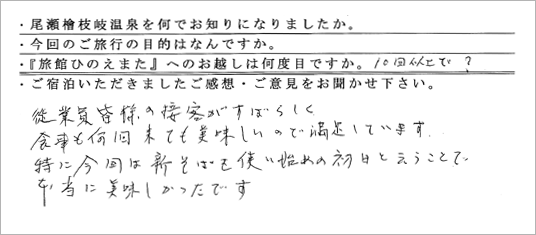 ・尾瀬檜枝岐温泉を何でお知りになりましたか。
・今回のご旅行の目的はなんですか。
・『旅館ひのえまた』へのお越しは何度目ですか。10回以上で?
・ご宿泊いただきましたご感想・ご意見をお聞かせ下さい。
従業員皆様の接客がすばらしく
食事も何回来ても美味しいので満足しています.
特に今回は新そばを使い始めの初日と云うことで
本当に美味しかったです